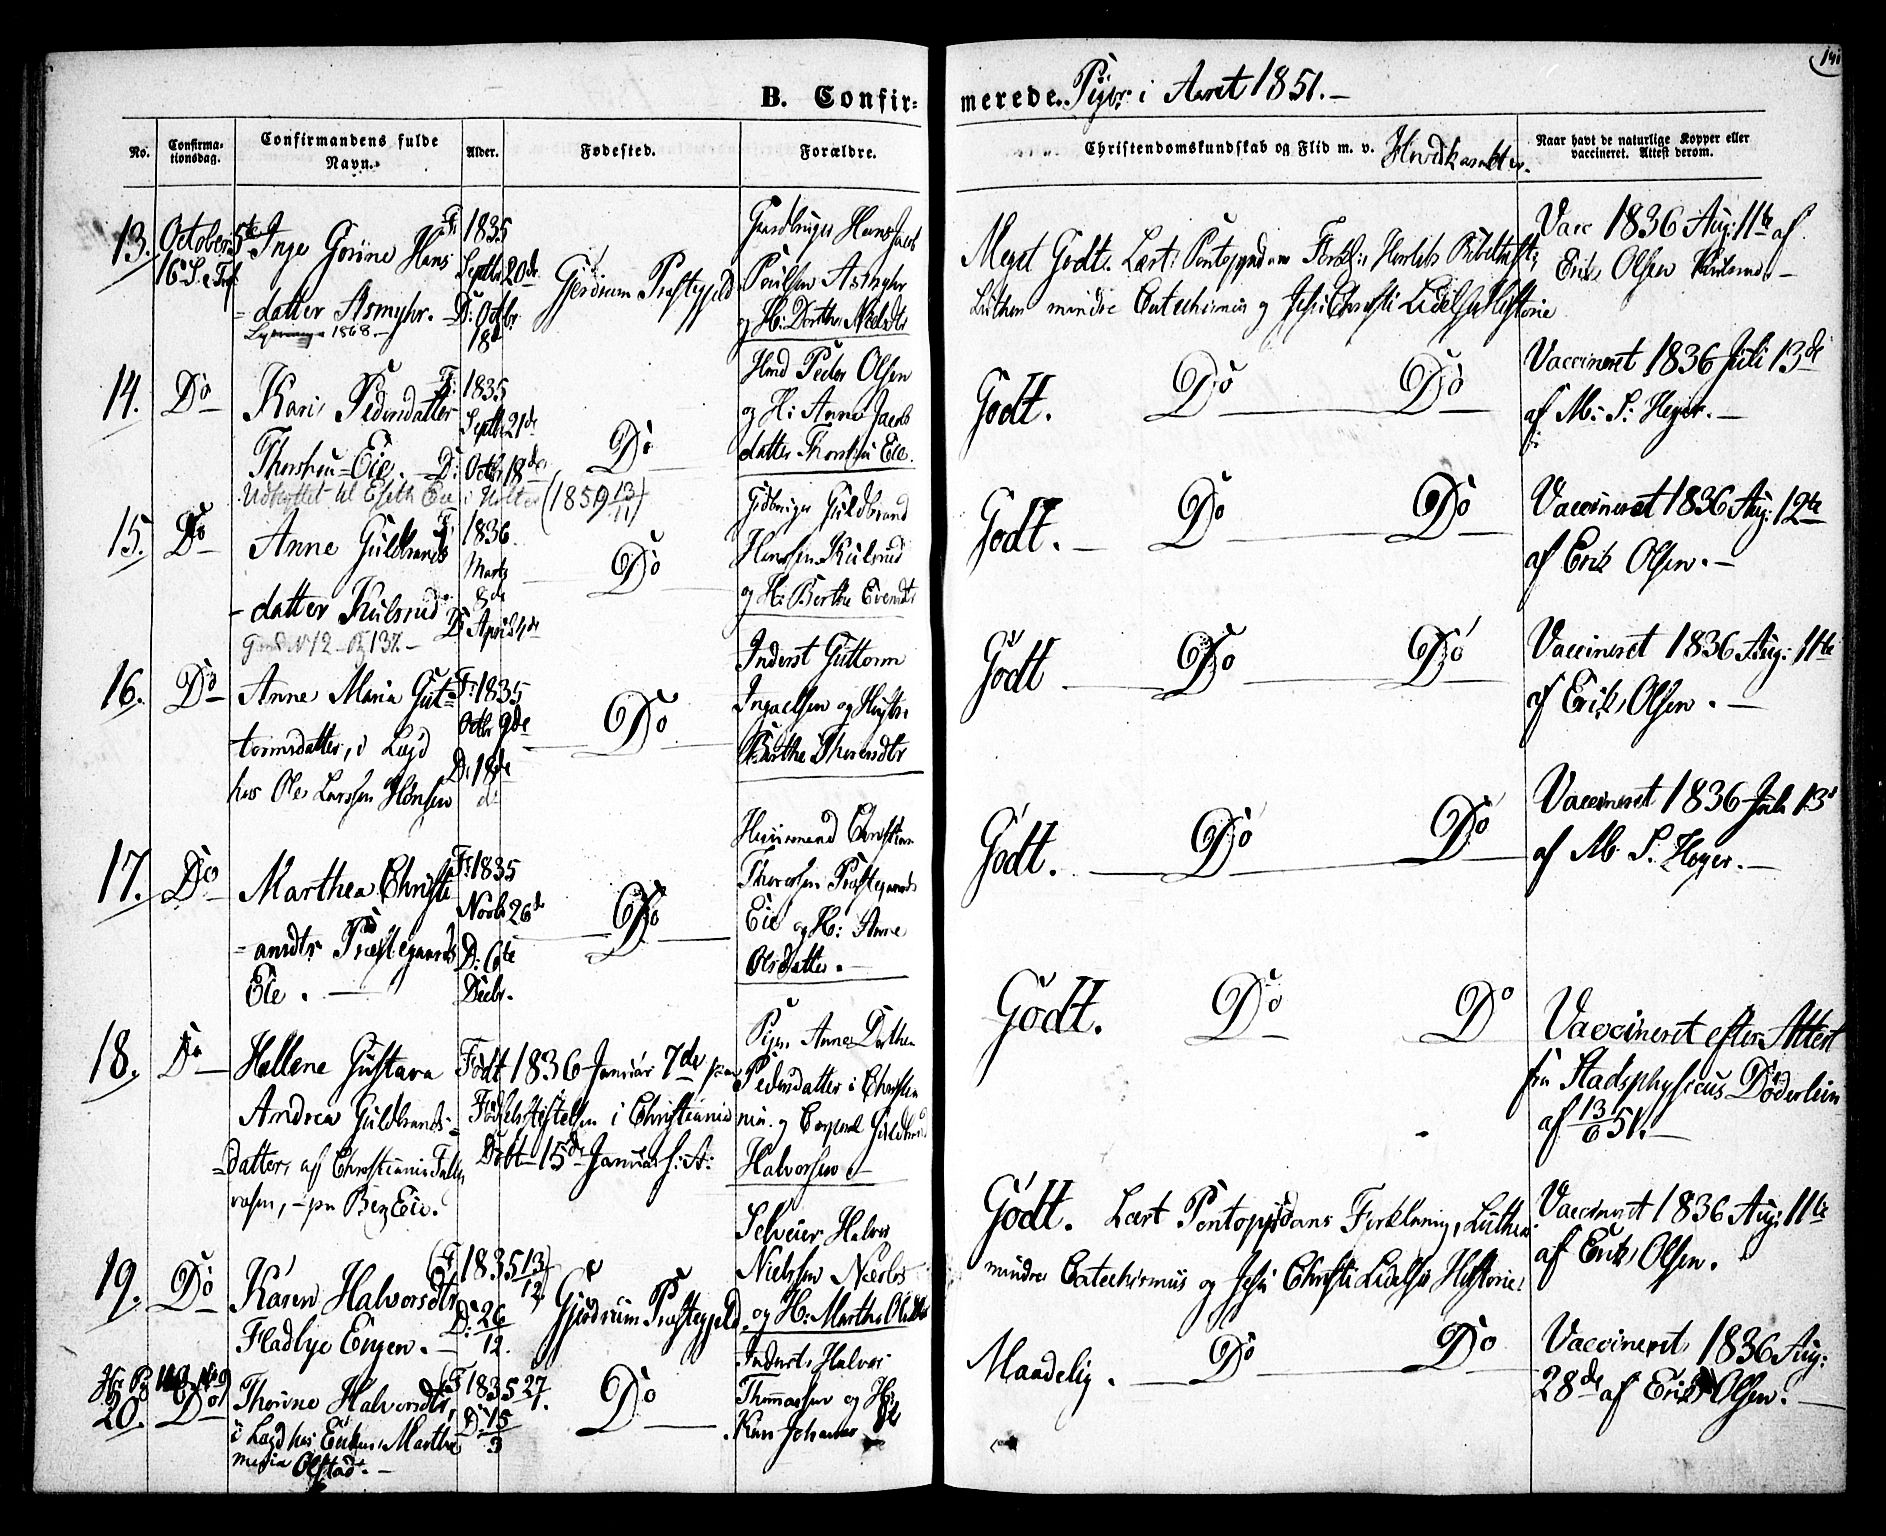 B. Confir-
merede. Piger i Aaret 1851.-
No.
Confirma-
tionsdag.
Confirmandens fulde
Navn.
Alder.
Fødested.
Forældre.
Christendomskundskab og Flid m. v.
Naar havt de naturlige Kopper eller
vaccineret. Attest derom.
13. October 5te
16 S. e Trf
Inge Gorine Hans
datter Asmyhr.
1868
F: 1835
Septbr 20de
D: Octbr
18de
Gjerdrum Præstegjeld
Gaardbruger Hans Jacob
Poulsen Asmyhr
og H: Dorthe Nielsdtr
Meget Godt. Læst: Pontoppidans Forkl: Bibelhist:
Luthers mindre Catechismus og Jesu Christi Lidelses Historie
Vacc 1836 Aug: 11te af
Erik Olsen
14. Do
Kari Pedersdatter
Eie.
F: 1835
Septbr 21de
D: Octbr 18de
Udflyttet til Eie i Holter (1859 13/11)
Do
Peder Olsen
og H: Anne Jacobs
datter Eie.
Godt. Do Do
Vaccineret 1836 Juli 13de
af M: S: Heyer.-
15. Do
Anne Guldbrands
-datter Kulsrud
F: 1836.
Marts
8de
D: April 4de
Do
Guldbrand
Hanssen Kulsrud
og H: Berthe Evensdtr
Godt. - Do Do
Vaccineret 1836 Aug: 12te
af Erik Olsen.-
16. Do
Anne Maria Gut-
tormsdatter, i Lægd
hos Ole Larssen Hønsen
F: 1835
Octbr 9de
D: 18de
d:
Do
Inderst Guttorm
Ingvelsen og Hustru
Berthe Thorensdtr
Godt Do Do
Vaccineret 1836 Aug: 11te
af Erik Olsen.-
17. Do
Marthea Christi
-ansdtr Præstegaards
Eie.-
F: 1835
Novbr 26de
D: 6te
Decbr.
Do
Huusmand Christian
Thoresen Præstegaards
Eie og H: Anne
Olsdatter.-
Godt. Do Do
Vaccineret 1836 Juli 13de
af M. S. Heyer.-
18. Do
Hellene Gustava
Andrea Guldbrands-
datter, af Christiania
-paa Eie.
Født 1836 Januar 7de paa
Fødselsstiftelsen i Christiania
Døbt 15de Januar s: A:
Pige Anne Dorthea
Pedersdatter i Christia
nia og Corporal Guldbrand
Halvorsen
Godt. Do Do
Vaccineret efter Attest
fra Stadsphysicus Döderlein
af 13/6 51.-
19. Do
Karen Halvorsdtr
Fladbye Engen.-
(F: 1835 13/12)
D: 26/12.
Gjerdrum Præstegjeld
Selveier Halvor
Nielssen
og H: Marthe Olsdtr
Godt. Læst Pontoppidans Forklaring, Luthers
mindre Catechismus og Jesu Christi Lidelses Historie.
Vaccineret 1836 Aug: 11te
af Erik Olsen.
20. Do
Thorine Halvorsdtr,
i Lægd hos Marthe
Maria Olstad.-
F 1835 27/
D: 15/3
Do
Inderst Halvor
Thomassen og H:
Karen Johanne
Maadelig. Do Do
Vaccineret 1836 Aug:
28de af Erik Olsen.